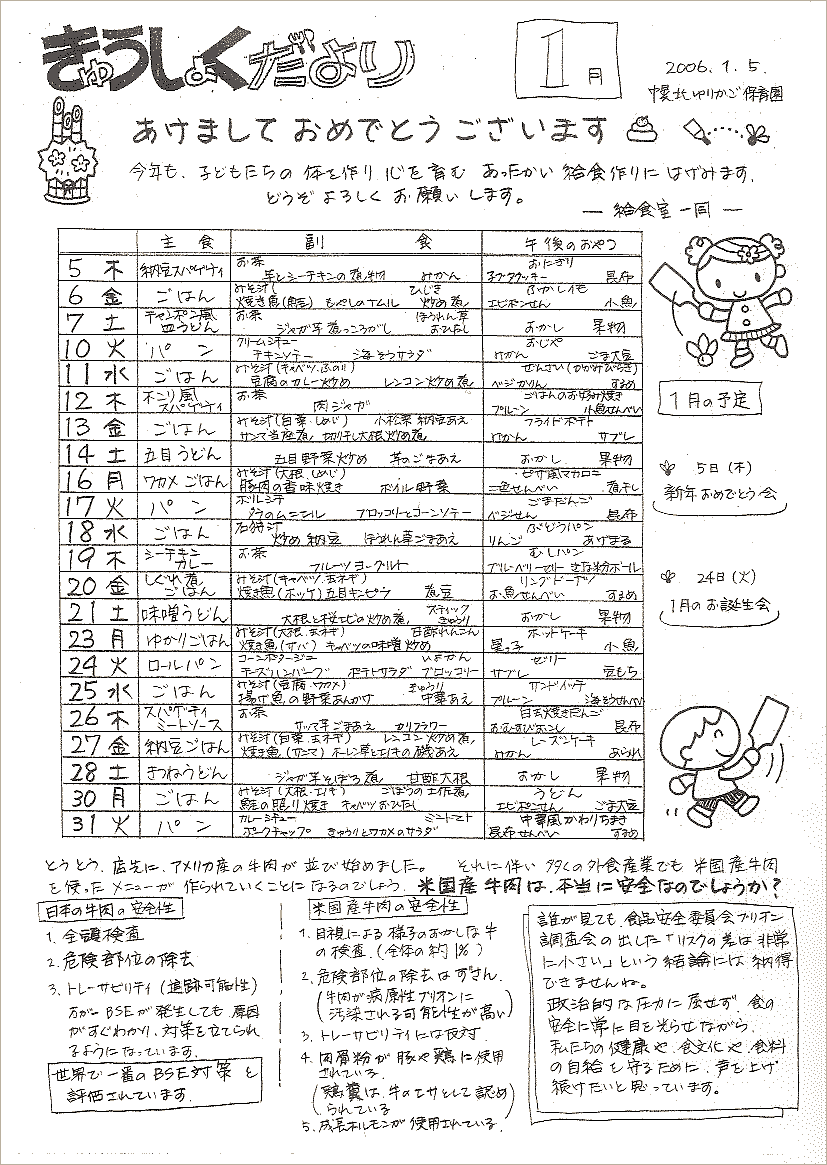 きゅうしょくだより
1月
2006.1.5.
ゆりかご保育園
あけまして おめでとうございます
今年も、子どもたちの 体を作り 心を育む あったかい 給食作りに はげみます.
どうぞ よろしく お願い します。
— 給食室一同 —
主食 副食 午後のおやつ
5 木 納豆スパゲティ お茶 みかん おにぎり 昆布
6 金 ごはん みそ汁 ひじき 焼き魚(鮭) もやしのナムル 炒め煮 ふかしイモ エビポンせん 小魚
7 土 チャンポン風皿うどん お茶 ほうれん草おひたし ジャガ芋煮っころがし おかし 果物
10 火 パン クリームシチュー チキンソテー 海そうサラダ おじや みかん ごま大豆
11 水 ごはん みそ汁(キャベツ.ふのり) 豆腐のカレー炒め レンコン炒め煮 ぜんざい(かがみびらき) ベジかりん するめ
12 木 スパゲティ お茶 肉ジャガ ごはんのお好み焼き プルーン 小魚せんべい
13 金 ごはん みそ汁(白菜.しめじ) 小松菜納豆あえ サンマ当座煮 切り干し大根炒め煮 フライドポテト みかん サブレ
14 土 五目うどん 五目野菜炒め 芋のごまあえ おかし 果物
16 月 ワカメごはん みそ汁(大根.しめじ) 豚肉の香味焼き ボイル野菜 ピザ風マカロニ 三色せんべい 煮干し
17 火 パン タラのムニエル ブロッコリーとコーンソテー ごまだんご ベジせん 昆布
18 水 ごはん 石狩汁 炒め納豆 ほうれん草ごまあえ ぶどうパン りんご あげまる
19 木 シーチキンカレー お茶 フルーツヨーグルト むしパン ブルーベリーゼリー きな粉ボール
20 金 しぐれ煮ごはん みそ汁(キャベツ.玉ネギ) 焼き魚(ホッケ) 五目キンピラ 煮豆 リングドーナツ お魚せんべい するめ
21 土 味噌うどん 大根と桜エビの炒め煮 スティックきゅうり おかし 果物
23 月 ゆかりごはん みそ汁(大根.玉ネギ) 甘酢れんこん 焼き魚(サバ) キャベツの味噌炒め ホットケーキ 星っ子 小魚
24 火 ロールパン コーンポタージュ いよかん チーズハンバーグ ポテトサラダ ブロッコリー ゼリー サブレ 豆もち
25 水 ごはん みそ汁(豆腐.ワカメ) きゅうり中華あえ 揚げ魚の野菜あんかけ サンドイッチ プルーン 海そうせんべい
26 木 スパゲティミートソース お茶 サツマ芋ごまあえ カリフラワー 白玉焼きだんご おむすびおこし 昆布
27 金 納豆ごはん みそ汁(白菜.玉ネギ) レンコン炒め煮 焼き魚(サンマ) ホーレン草とエノキの磯あえ レーズンケーキ みかん あられ
28 土 きつねうどん ジャガ芋そぼろ煮 甘酢大根 おかし 果物
30 月 ごはん みそ汁(大根.エノキ) ごぼうの土佐煮 鮭の照り焼き キャベツおひたし うどん エビポンせん ごま大豆
31 火 パン カレーシチュー ミニトマト ポークチャップ きゅうりとワカメのサラダ 中華風かわりちまき 昆布せんべい するめ
1月の予定
5日(木)
新年おめでとう会
24日(火)
1月のお誕生会
とうとう、店先に、アメリカ産の牛肉が 並び始めました。 それに伴い 多くの外食産業でも 米国産牛肉
を使ったメニューが 作られていくことに なるのでしょう. 米国産牛肉は、本当に安全なのでしょうか?
日本の牛肉の安全性
1. 全頭検査
2. 危険部位の除去
3. トレーサビリティ(追跡可能性)
万が一BSEが発生しても 原因
がすぐわかり、対策を立てられ
るようになっています.
世界で一番のBSE対策と
評価されています.
米国産牛肉の安全性
1. 目視による 様子のおかしな牛
の検査.(全体の約1%)
2. 危険部位の除去はずさん.
(牛肉が病原性プリオンに
汚染される可能性が高い)
3. トレーサビリティには反対.
4. 肉骨粉が 豚や鶏に使用
されている.
(鶏糞は、牛のエサとして認め
られている)
5. 成長ホルモンが使用されている.
誰が見ても、食品安全委員会プリオン
調査会の出した「リスクの差は非常
に小さい」という結論には 納得
できませんね。
政治的な圧力に屈せず、食の
安全に常に目を光らせながら、
私たちの健康や、食文化や、食料
の自給を守るために、声を上げ
続けたいと思っています。